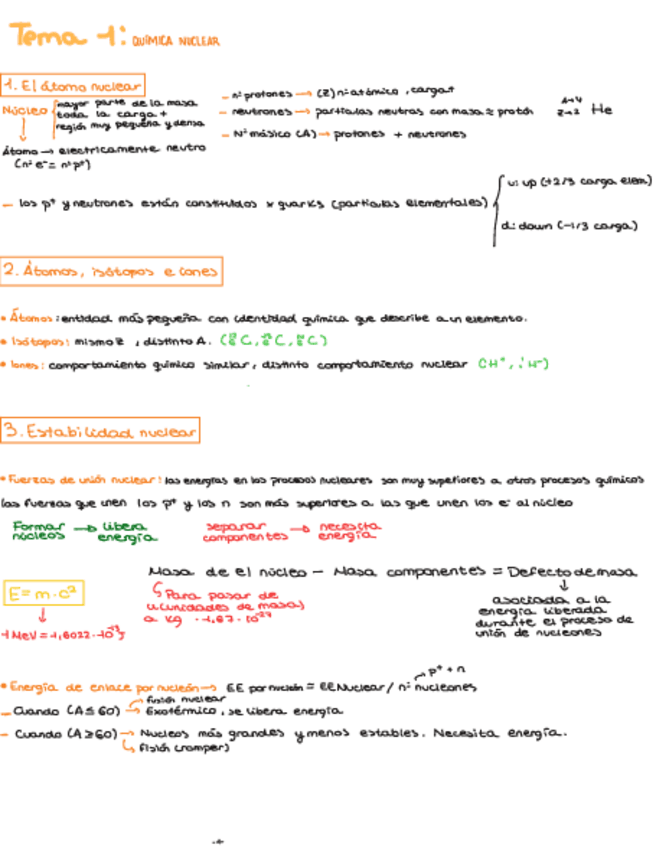 Tema 1: QUÍMICA NUCLEAR
1. El átomo nuclear
Núcleo
mayor parte de la masa
toda la carga +
región muy pequeña y densa
- nº protones → (Z) nº atómico, carga +
- neutrones → partículas neutras con masa ≈ protón
- Nº másico (A) → protones + neutrones
A→4
Z→2 He
Átomo → eléctricamente neutro
(nº e⁻ = nº p⁺)
- los p⁺ y neutrones están constituidos x quarks (partículas elementales)
u: up (+2/3 carga elem)
d: down (-1/3 carga)
2. Átomos, isótopos e iones
• Átomos: entidad más pequeña con identidad química que describe a un elemento.
• Isótopos: mismo Z, distinto A.
• Iones: comportamiento químico similar, distinto comportamiento nuclear
3. Estabilidad nuclear
• Fuerzas de unión nuclear: las energías en los procesos nucleares son muy superiores a otros procesos químicos
las fuerzas que unen los p⁺ y los n son más superiores a las que unen los e⁻ al núcleo
Formar núcleos → libera energía
separar componentes → necesita energía
Masa de el núcleo - Masa componentes = Defecto de masa
E = m · c²
Para pasar de
u (unidades de masa)
a kg · 1,67 · 10⁻²⁷
asociada a la
energía liberada
durante el proceso de
unión de nucleones
1 MeV = 1,6022 · 10⁻¹³ J
• Energía de enlace por nucleón → EE por nucleón = EE Nuclear / nº nucleones
p⁺ + n
- Cuando (A ≤ 60) → Exotérmico, se libera energía
fusión nuclear
- Cuando (A ≥ 60) → Nucleos más grandes y menos estables. Necesita energía.
fisión (romper)